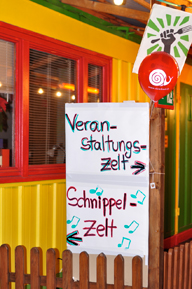 Veran-
staltungs-
zelt →
Schnippel-
zelt